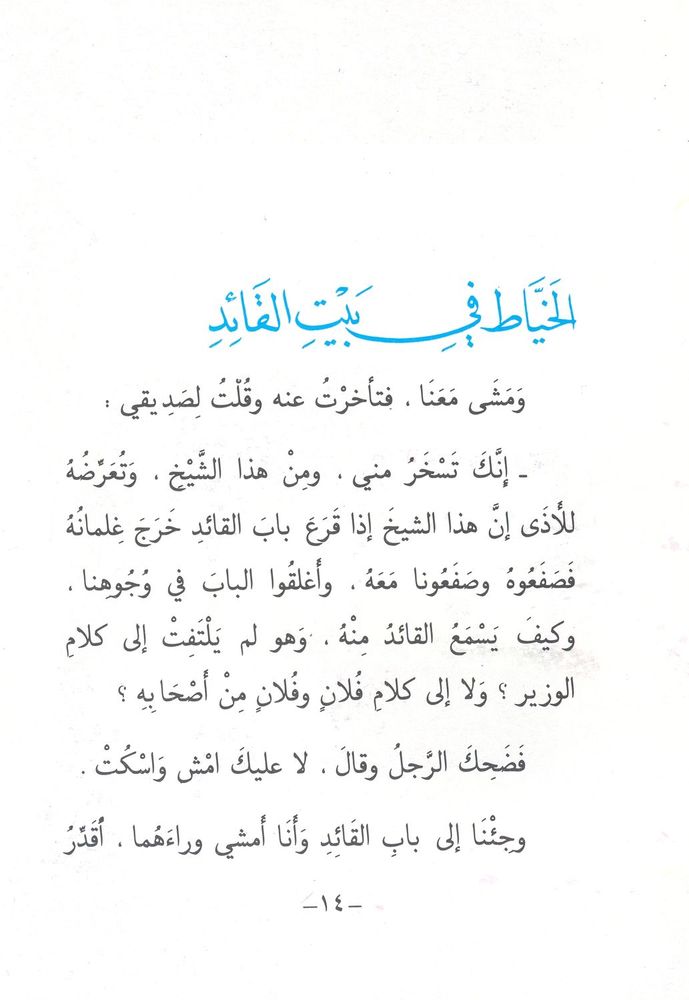 الخَيَّاط في بَيْتِ القَائِدِ
وَمَشَى مَعَنَا ، فتأخرْتُ عنه وقُلْتُ لِصَدِيقي :
ـ إِنَّكَ تَسْخَرُ مني ، ومِنْ هذا الشَّيْخِ ، وَتُعَرِّضُهُ
للأَذَى إنَّ هذا الشيخَ إذا قَرَعَ بابَ القائدِ خَرَجَ غِلمانُهُ
فَصَفَعُوهُ وصَفَعُونا مَعَهُ ، وأَغلقُوا البابَ في وُجُوهِنا ،
وكيفَ يَسْمَعُ القائدُ مِنْهُ ، وَهو لم يَلْتَفِتْ إلى كلامِ
الوزير ؟ وَلا إلى كلامِ فُلانٍ وفُلانٍ مِنْ أَصْحَابِهِ ؟
فَضَحِكَ الرَّجلُ وقالَ ، لا عليكَ امْش وَاسْكُتْ .
وجِئْنَا إلى بابِ القَائِدِ وَأَنَا أَمشي وراءَهُما ، أُقَدِّرُ
–١٤–